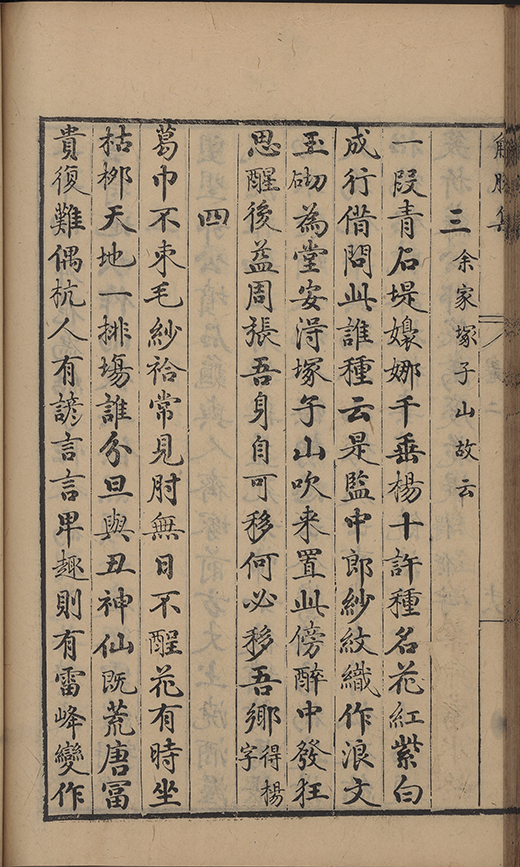 解脫集
三　余家塚子山故云
一段青石堤嬝娜千垂楊十許種名花紅紫白
成行借問此誰種云是監中郎紗紋織作浪文
玉砌為堂安得塚子山吹来置此傍醉中發狂
思醒後益周張吾身自可移何必移吾鄉得楊字
四
葛巾不束毛紗袷常見肘無日不醒花有時坐
枯栁天地一排塲誰分旦與丑神仙既荒唐冨
貴復難偶杭人有諺言言卑趣則有雷峰變作